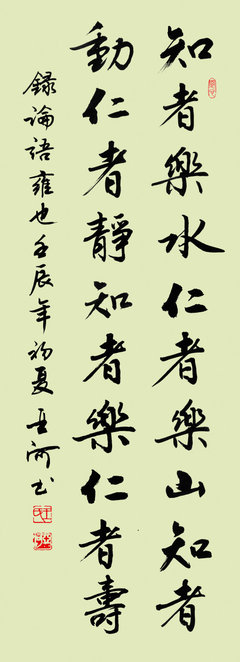 知者樂水仁者樂山知者
動仁者靜知者樂仁者壽
錄論語雍也壬辰年初夏王河書